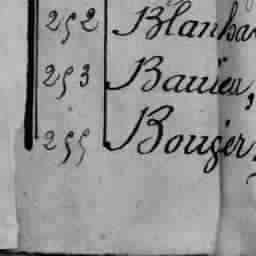 252 Blanha
253 Bauieu,
255 Bougier,